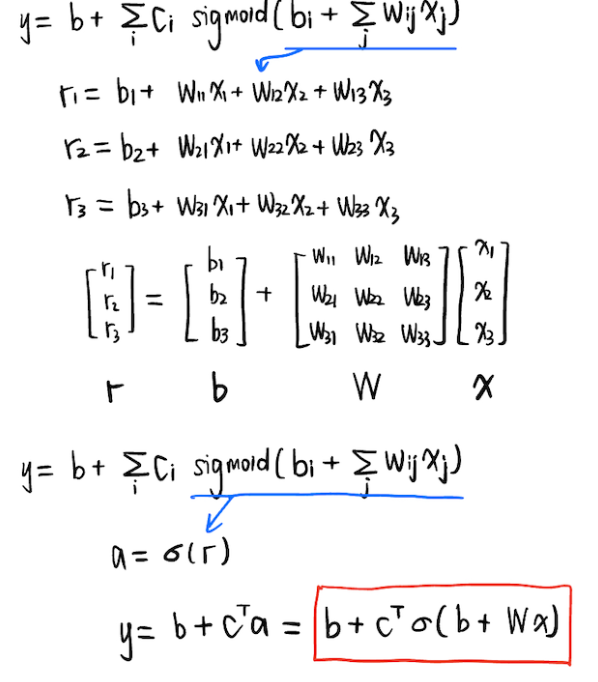 y = b + Σ_i c_i sigmoid(b_i + Σ_j w_ij x_j)
r_1 = b_1 + w_11 x_1 + w_12 x_2 + w_13 x_3
r_2 = b_2 + w_21 x_1 + w_22 x_2 + w_23 x_3
r_3 = b_3 + w_31 x_1 + w_32 x_2 + w_33 x_3
[r_1 r_2 r_3] = [b_1 b_2 b_3] + [w_11 w_12 w_13 w_21 w_22 w_23 w_31 w_32 w_33] [x_1 x_2 x_3]
r b W x
y = b + Σ_i c_i sigmoid(b_i + Σ_j w_ij x_j)
a = σ(r)
y = b + c^T a = b + c^T σ(b + Wx)